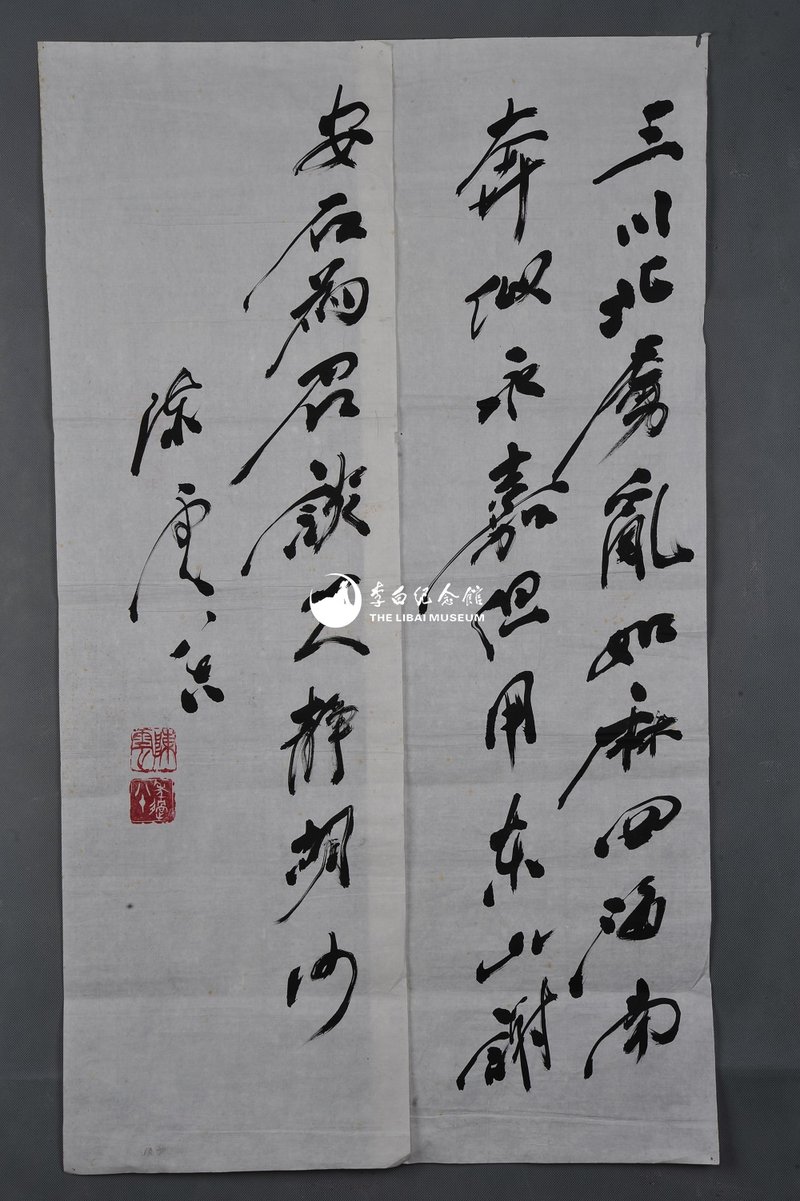 三川北虜亂如麻四海南
奔似永嘉但用东山謝
安石為君談笑静胡沙
陈雲
陳雲
李白纪念館
THE LIBAI MUSEUM